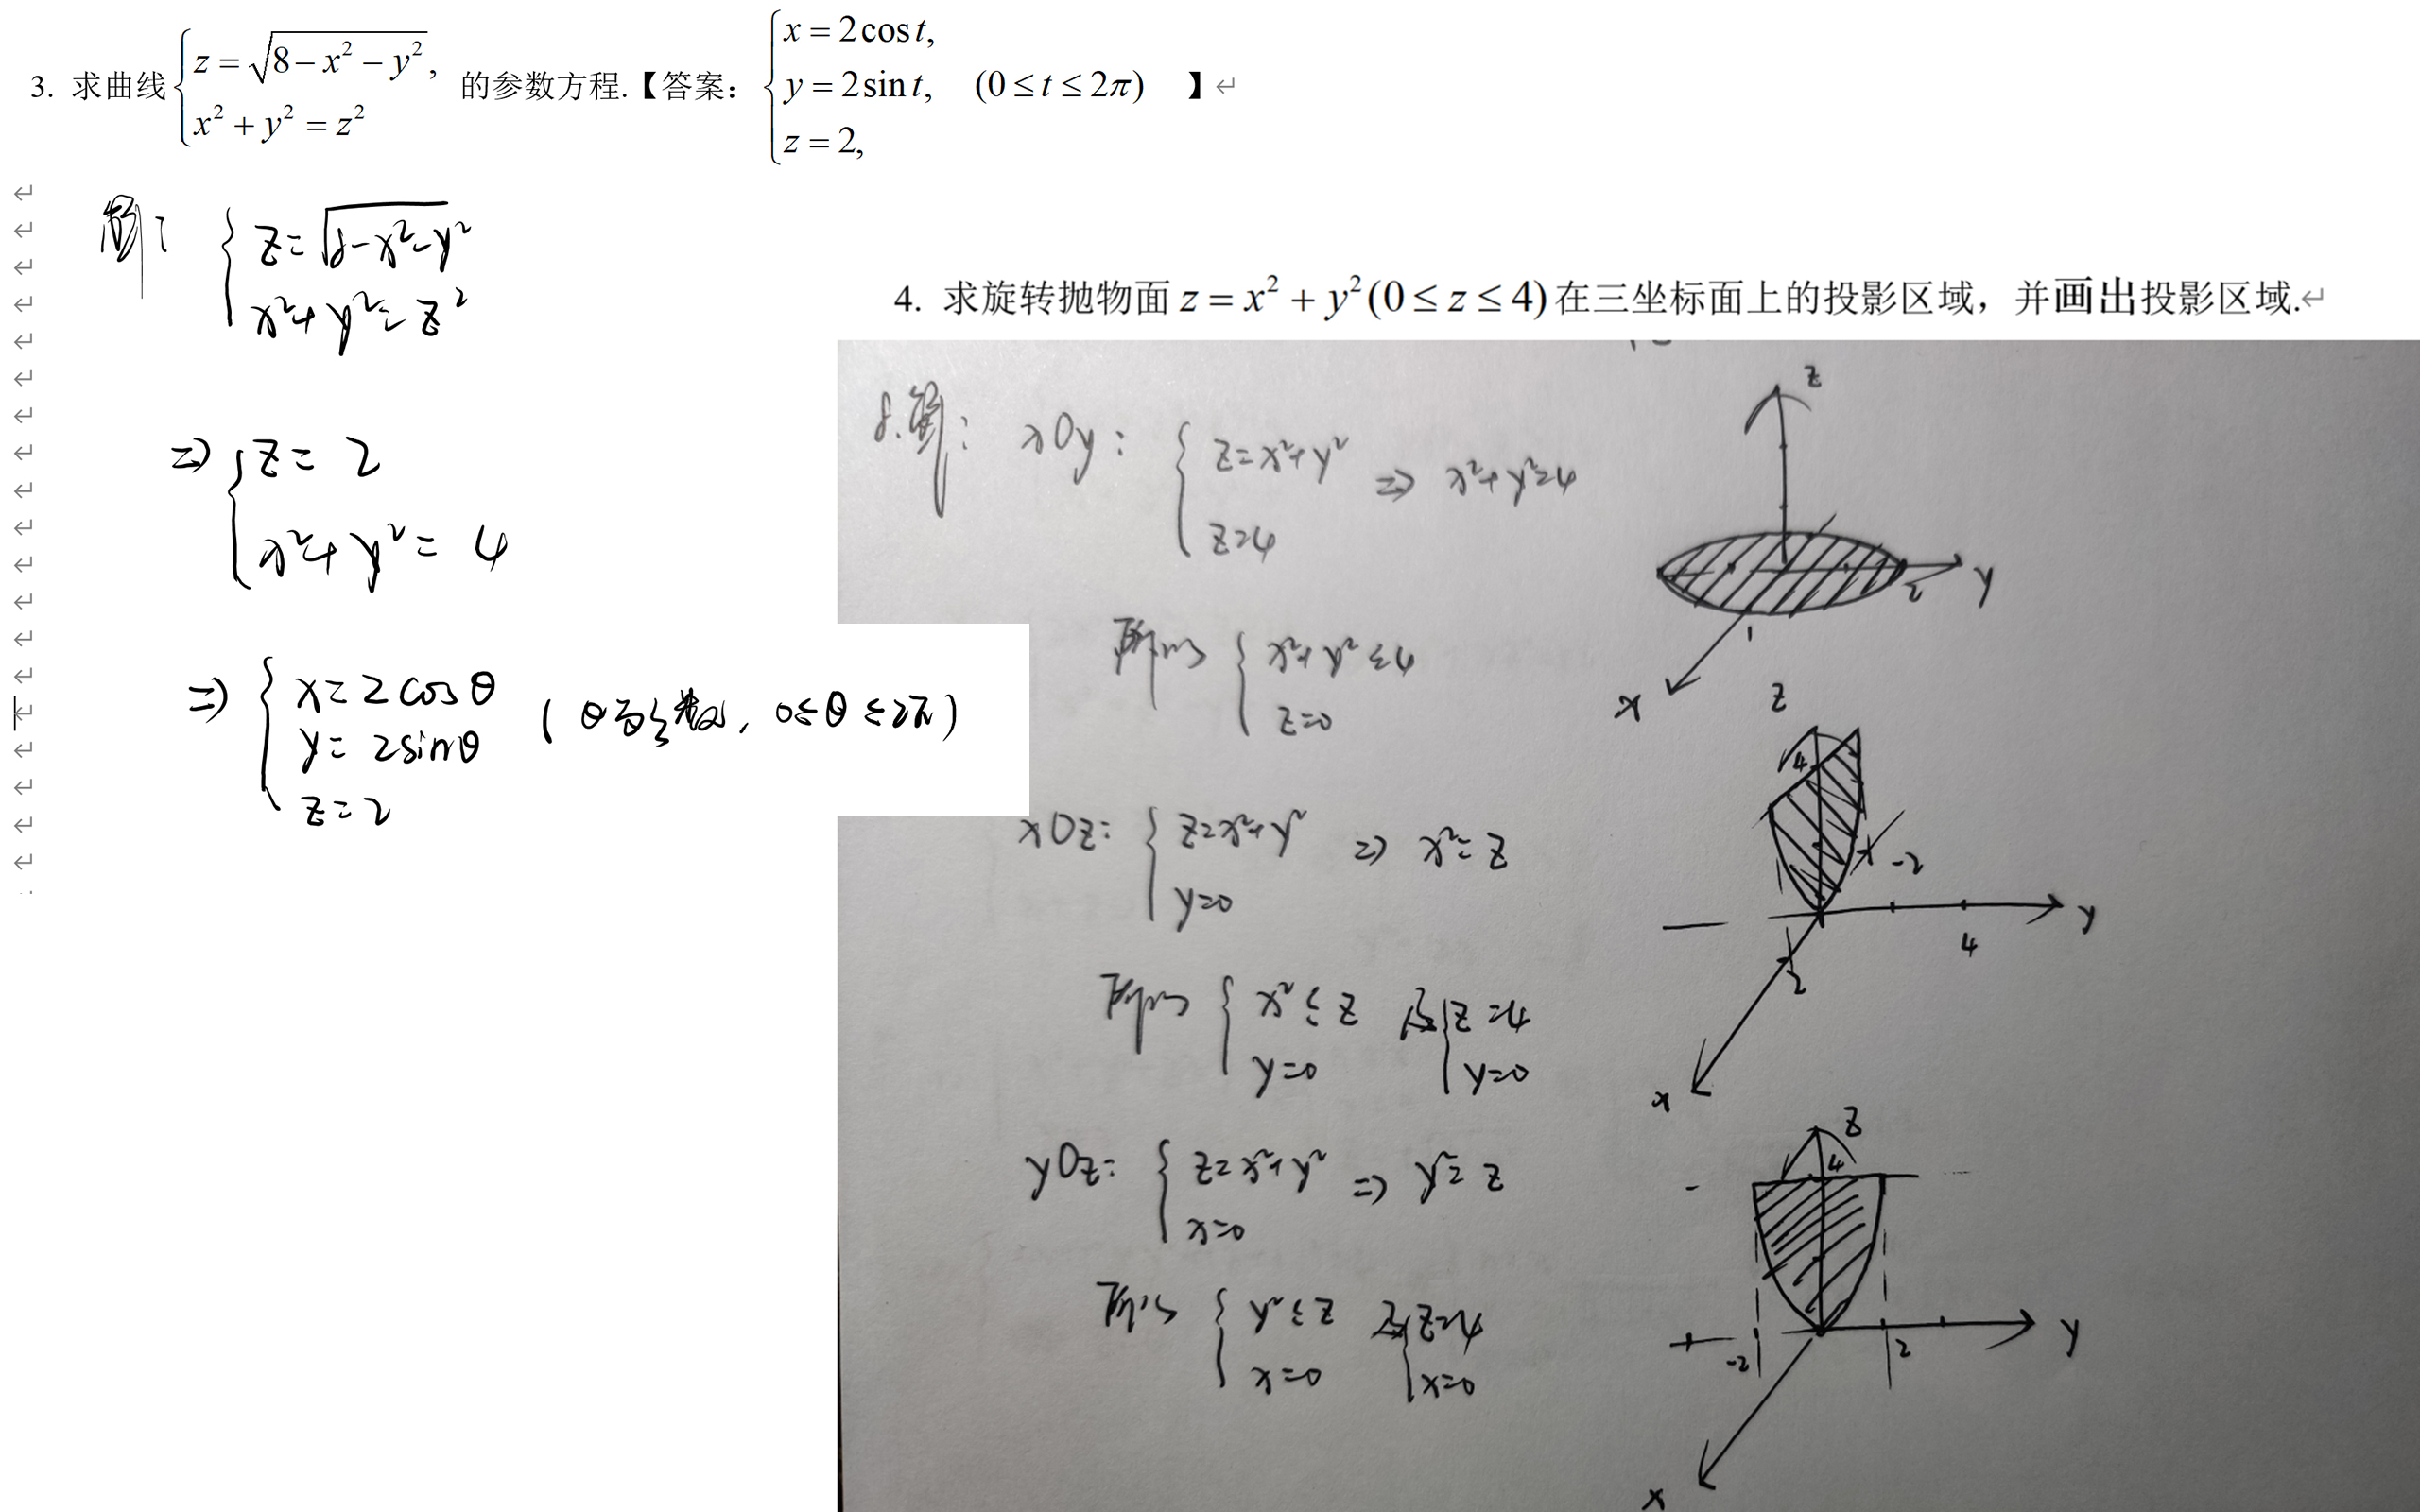 3. 求曲线 { z = √(8 − x² − y²), x² + y² = z² 的参数方程.【答案： { x = 2cos t, y = 2sin t, z = 2, (0 ≤ t ≤ 2π) 】
解： { z = √(8−x²−y²)
x²+y² = z²
⇒ { z = 2
x²+y² = 4
⇒ { x = 2cosθ
y = 2sinθ (θ为参数, 0≤θ≤2π)
z = 2
4. 求旋转抛物面 z = x² + y² (0 ≤ z ≤ 4) 在三坐标面上的投影区域，并画出投影区域.
8.解： xOy： { z=x²+y² ⇒ x²+y²=4
z=4
所以 { x²+y² ≤4
z=0
xOz: { z=x²+y² ⇒ x²=z
y=0
所以 { x² ≤ z 及 { z=4
y=0 y=0
yOz: { z=x²+y² ⇒ y²=z
x=0
所以 { y² ≤ z 及 { z=4
x=0 x=0
z
y
2
1
x
z
4
-2
y
4
2
x
z
4
y
-2
2
x